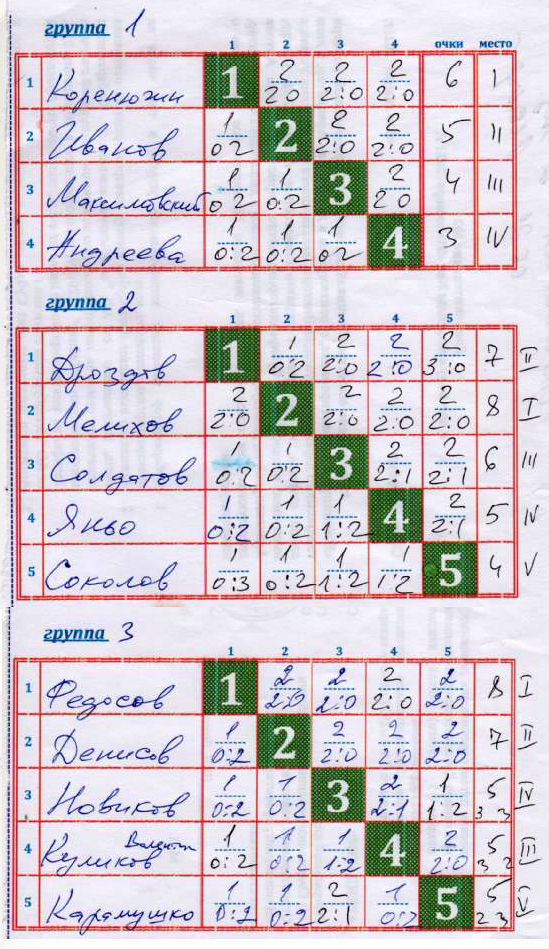 группа 1
1 2 3 4 очки место
1 Коренюжин 1 2 2:0 2 2:0 2 2:0 6 I
2 Иванов 1 0:2 2 2 2:0 2 2:0 5 II
3 Максимовский 1 0:2 1 0:2 3 2 2:0 4 III
4 Андреева 1 0:2 1 0:2 1 0:2 4 3 IV
группа 2
1 2 3 4 5
1 Дроздов 1 1 0:2 2 2:0 2 2:0 2 3:0 7 II
2 Мелихов 2 2:0 2 2 2:0 2 2:0 2 2:0 8 I
3 Солдатов 1 0:2 1 0:2 3 2 2:1 2 2:1 6 III
4 Яньо 1 0:2 1 0:2 1 1:2 4 2 2:1 5 IV
5 Соколов 1 0:3 1 0:2 1 1:2 1 1:2 5 4 V
группа 3
1 2 3 4 5
1 Федосов 1 2 2:0 2 2:0 2 2:0 2 2:0 8 I
2 Денисов 1 0:2 2 2 2:0 2 2:0 2 2:0 7 II
3 Новиков 1 0:2 1 0:2 3 2 2:1 1 1:2 5 3 3 IV
4 Куликов Валентин 1 0:2 1 0:2 1 1:2 4 2 2:0 5 3 2 III
5 Карамушко 1 0:2 1 0:2 2 2:1 1 0:2 5 5 2 3 V